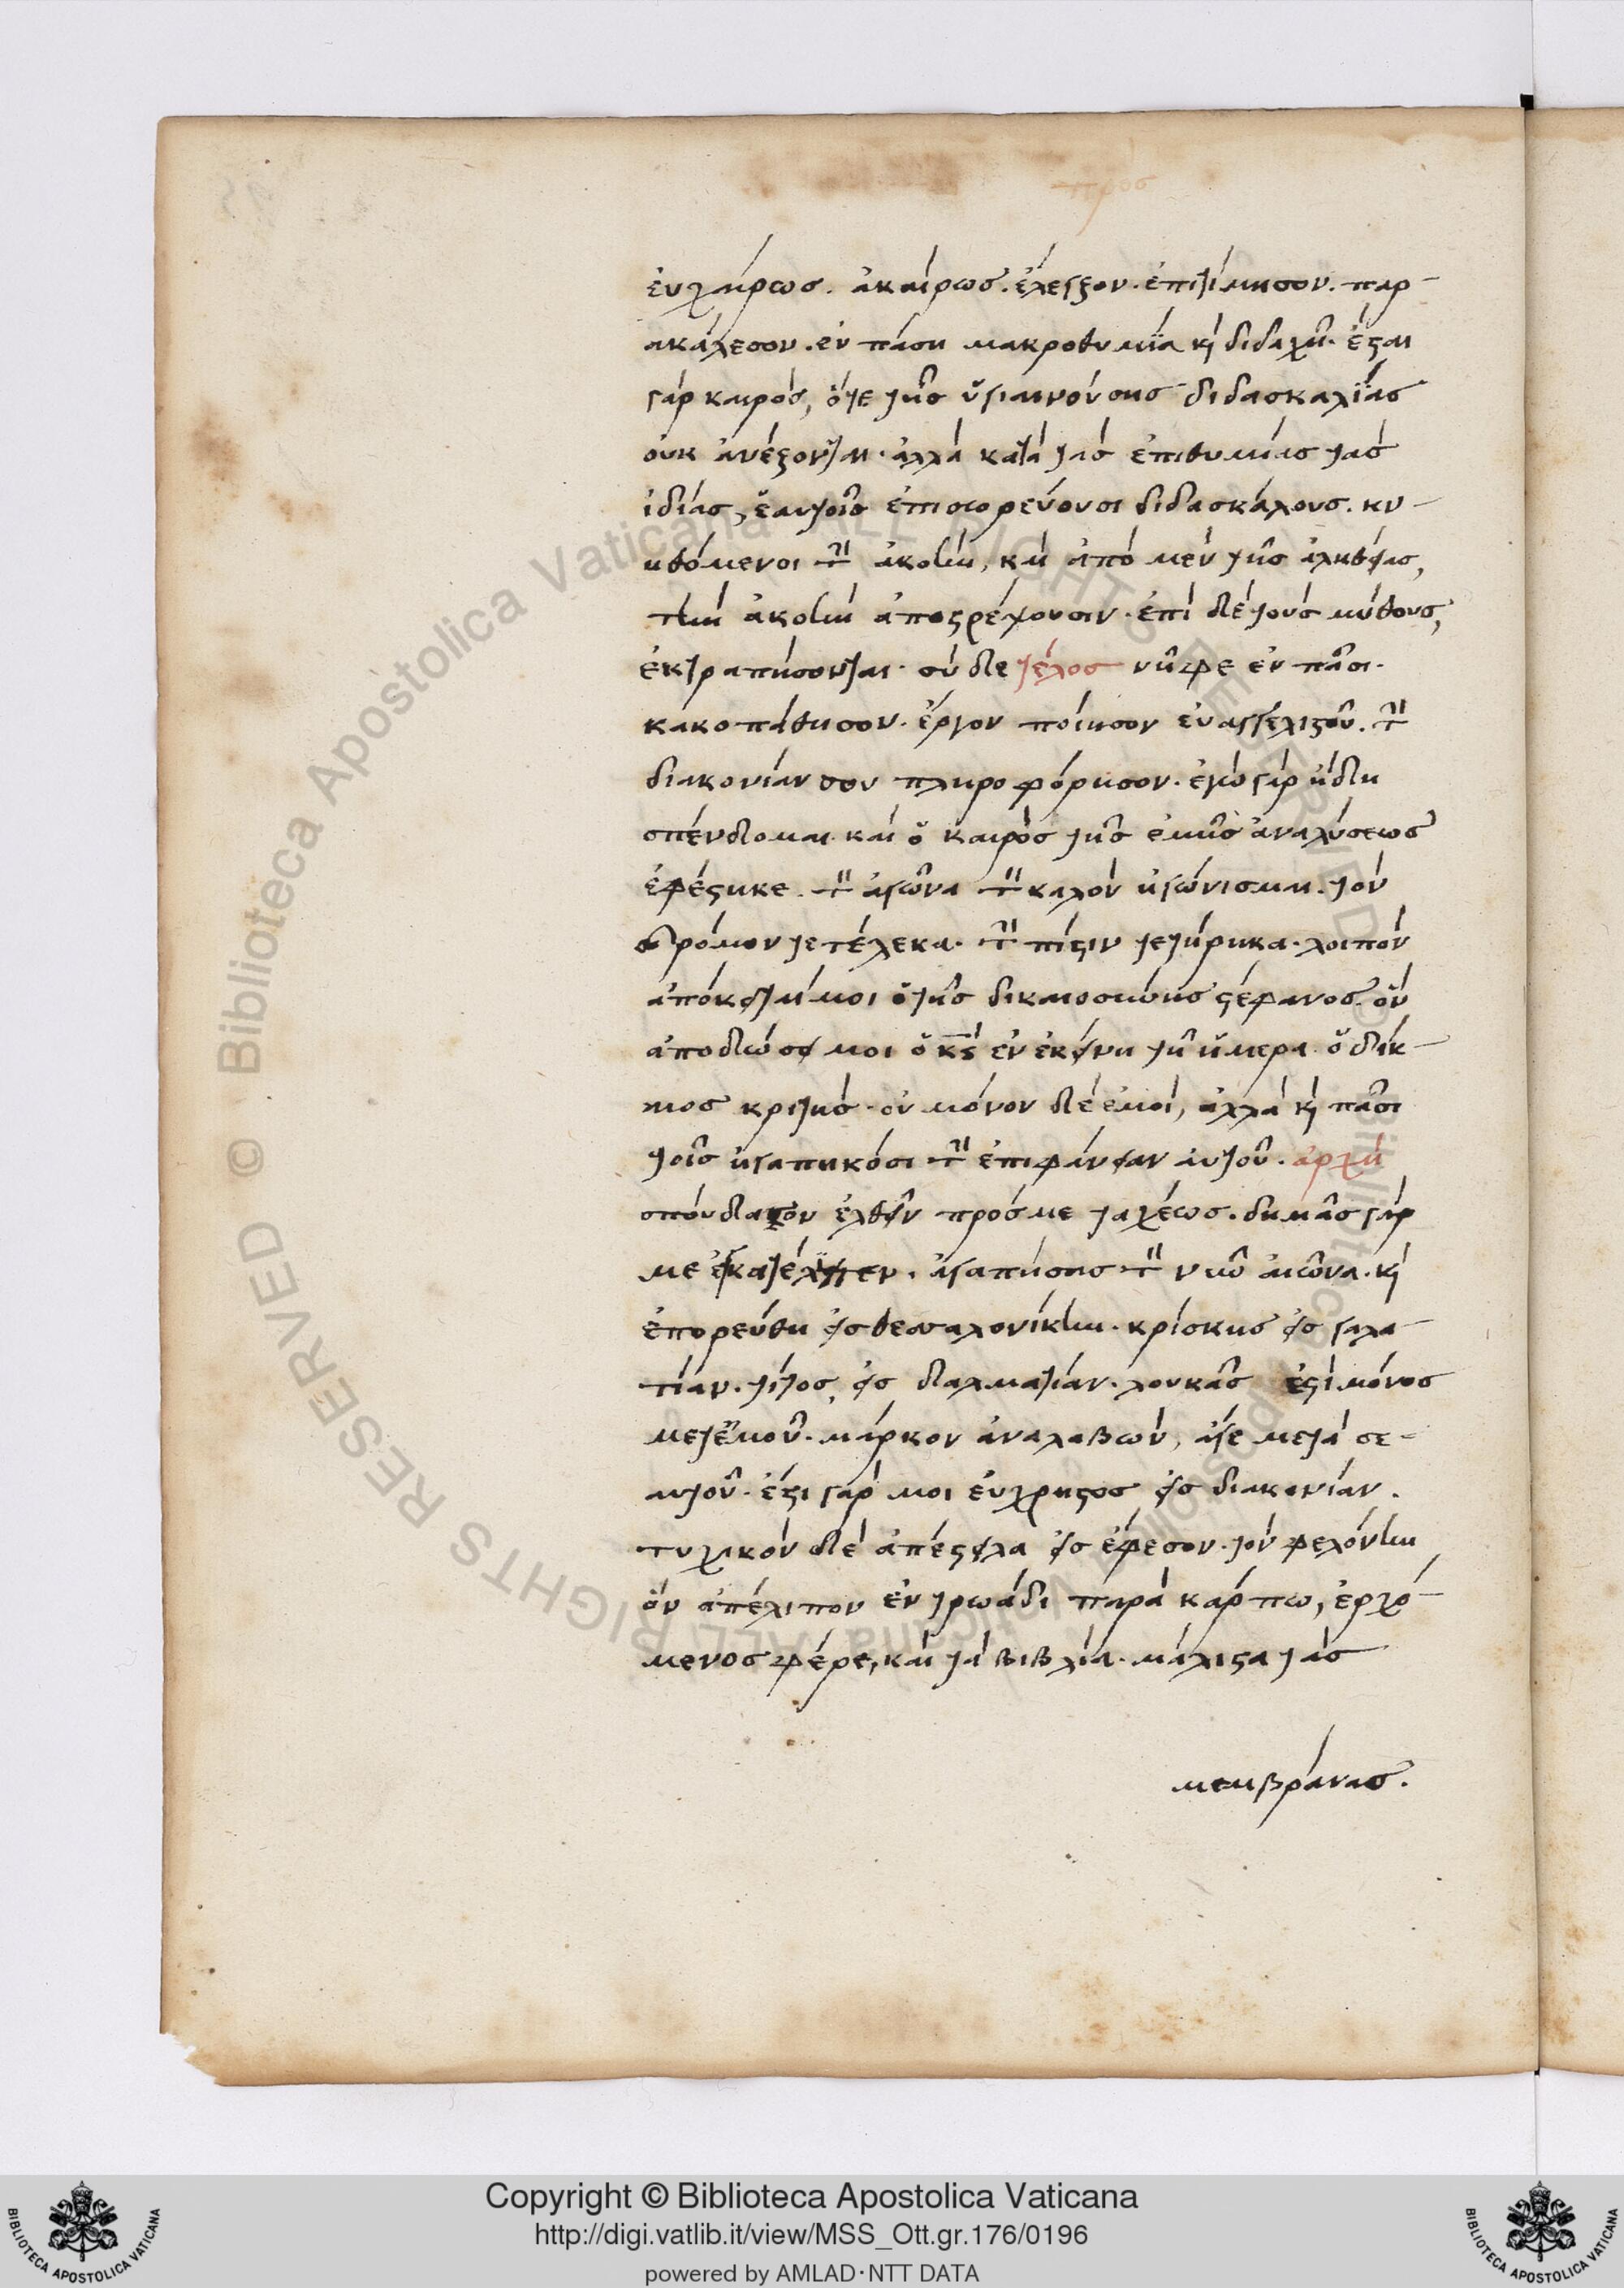 προσ
ἐυχαίρωσ. ἀκαίρωσ. ἔλεγξον. ἐπιτίμησον. παρ-
ακάλεσον. ἐν πάση μακροθυμΐα κὶ διδαχῆ. ἔσται
γάρ καιρόσ, ὅτε τῆσ ὑγιαινούσησ διδασκαλΐασ
ουκ ἀνέξονται. ἀλλά κατά τάσ ἐπιθυμίασ τάσ
ἰδίασ, ἑαυτοῖσ ἐπισωρεύουσι διδασκάλουσ. κν-
ηθόμενοι τὴν ἀκοήν, καί ἀπό μέν τῆσ ἀληθείασ,
τήν ἀκοήν ἀποστρέχουσιν. ἐπί δέ τούσ μύθουσ,
ἐκτραπήσονται. σύ δε τέλοσ νῆφε ἐν πᾶσι.
κακοπάθησον. ἔργον ποίησον ἐυαγγελιστοῦ. τὴν
διακονίαν σου πληροφόρησον. ἐγώ γάρ ἤδη
σπένδομαι. καί ὁ καιρόσ τῆσ ἐμῆσ ἀναλύσεωσ
ἐφέστηκε. τὸν ἀγῶνα τὸν καλόν ἠγώνισμαι. τόν
δρόμον τετέλεκα. τὴν πίστιν τετήρηκα. λοιπόν
ἀπόκειταί μοι ὁ τῆσ δικαιοσύνησ στέφανοσ. ὅν
ἀποδώσει μοι ὁ κσ ἐν ἐκείνη τῆ ἡμερα ὁ δίκ-
αιοσ κριτήσ. ού μόνον δέ ἐμοί, ἀλλά κὶ πᾶσι
τοῖσ ἠγαπηκόσι τὴν ἐπιφάνειαν ἀυτοῦ. ἀρχή
σπόυδασον ἐλθεῖν πρόσ με ταχέωσ. δημᾶσ γάρ
με ἐγκατέλϊπεν. ἀγαπήσησ τὸν νῦν ἀιῶνα. κὶ
ἐπορεύθη εἰσ θεσσαλονίκην. κρίσκησ εἰσ γαλα-
τίαν. τίτοσ, εἰσ δαλματίαν. λουκᾶσ ἐστὶ μόνοσ
μετ' ἐμοῦ. μάρκον ἀναλαβών, ἄγε μετά σε-
αυτοῦ. ἔστι γάρ μοι ἐύχρηστοσ εἰσ διακονίαν.
τυχικόν δέ ἀπέστειλα εἰσ ἔφεσον. τόν φελόνην
ὅν ἀπέλιπον ἐν τρωάδι παρά κάρπω, ἐρχό-
μενοσ φέρε, καί τά βιβλία. μάλιστα τάσ
μεμβράνασ.
Copyright © Biblioteca Apostolica Vaticana
http://digi.vatlib.it/view/MSS_Ott.gr.176/0196
powered by AMLAD·NTT DATA